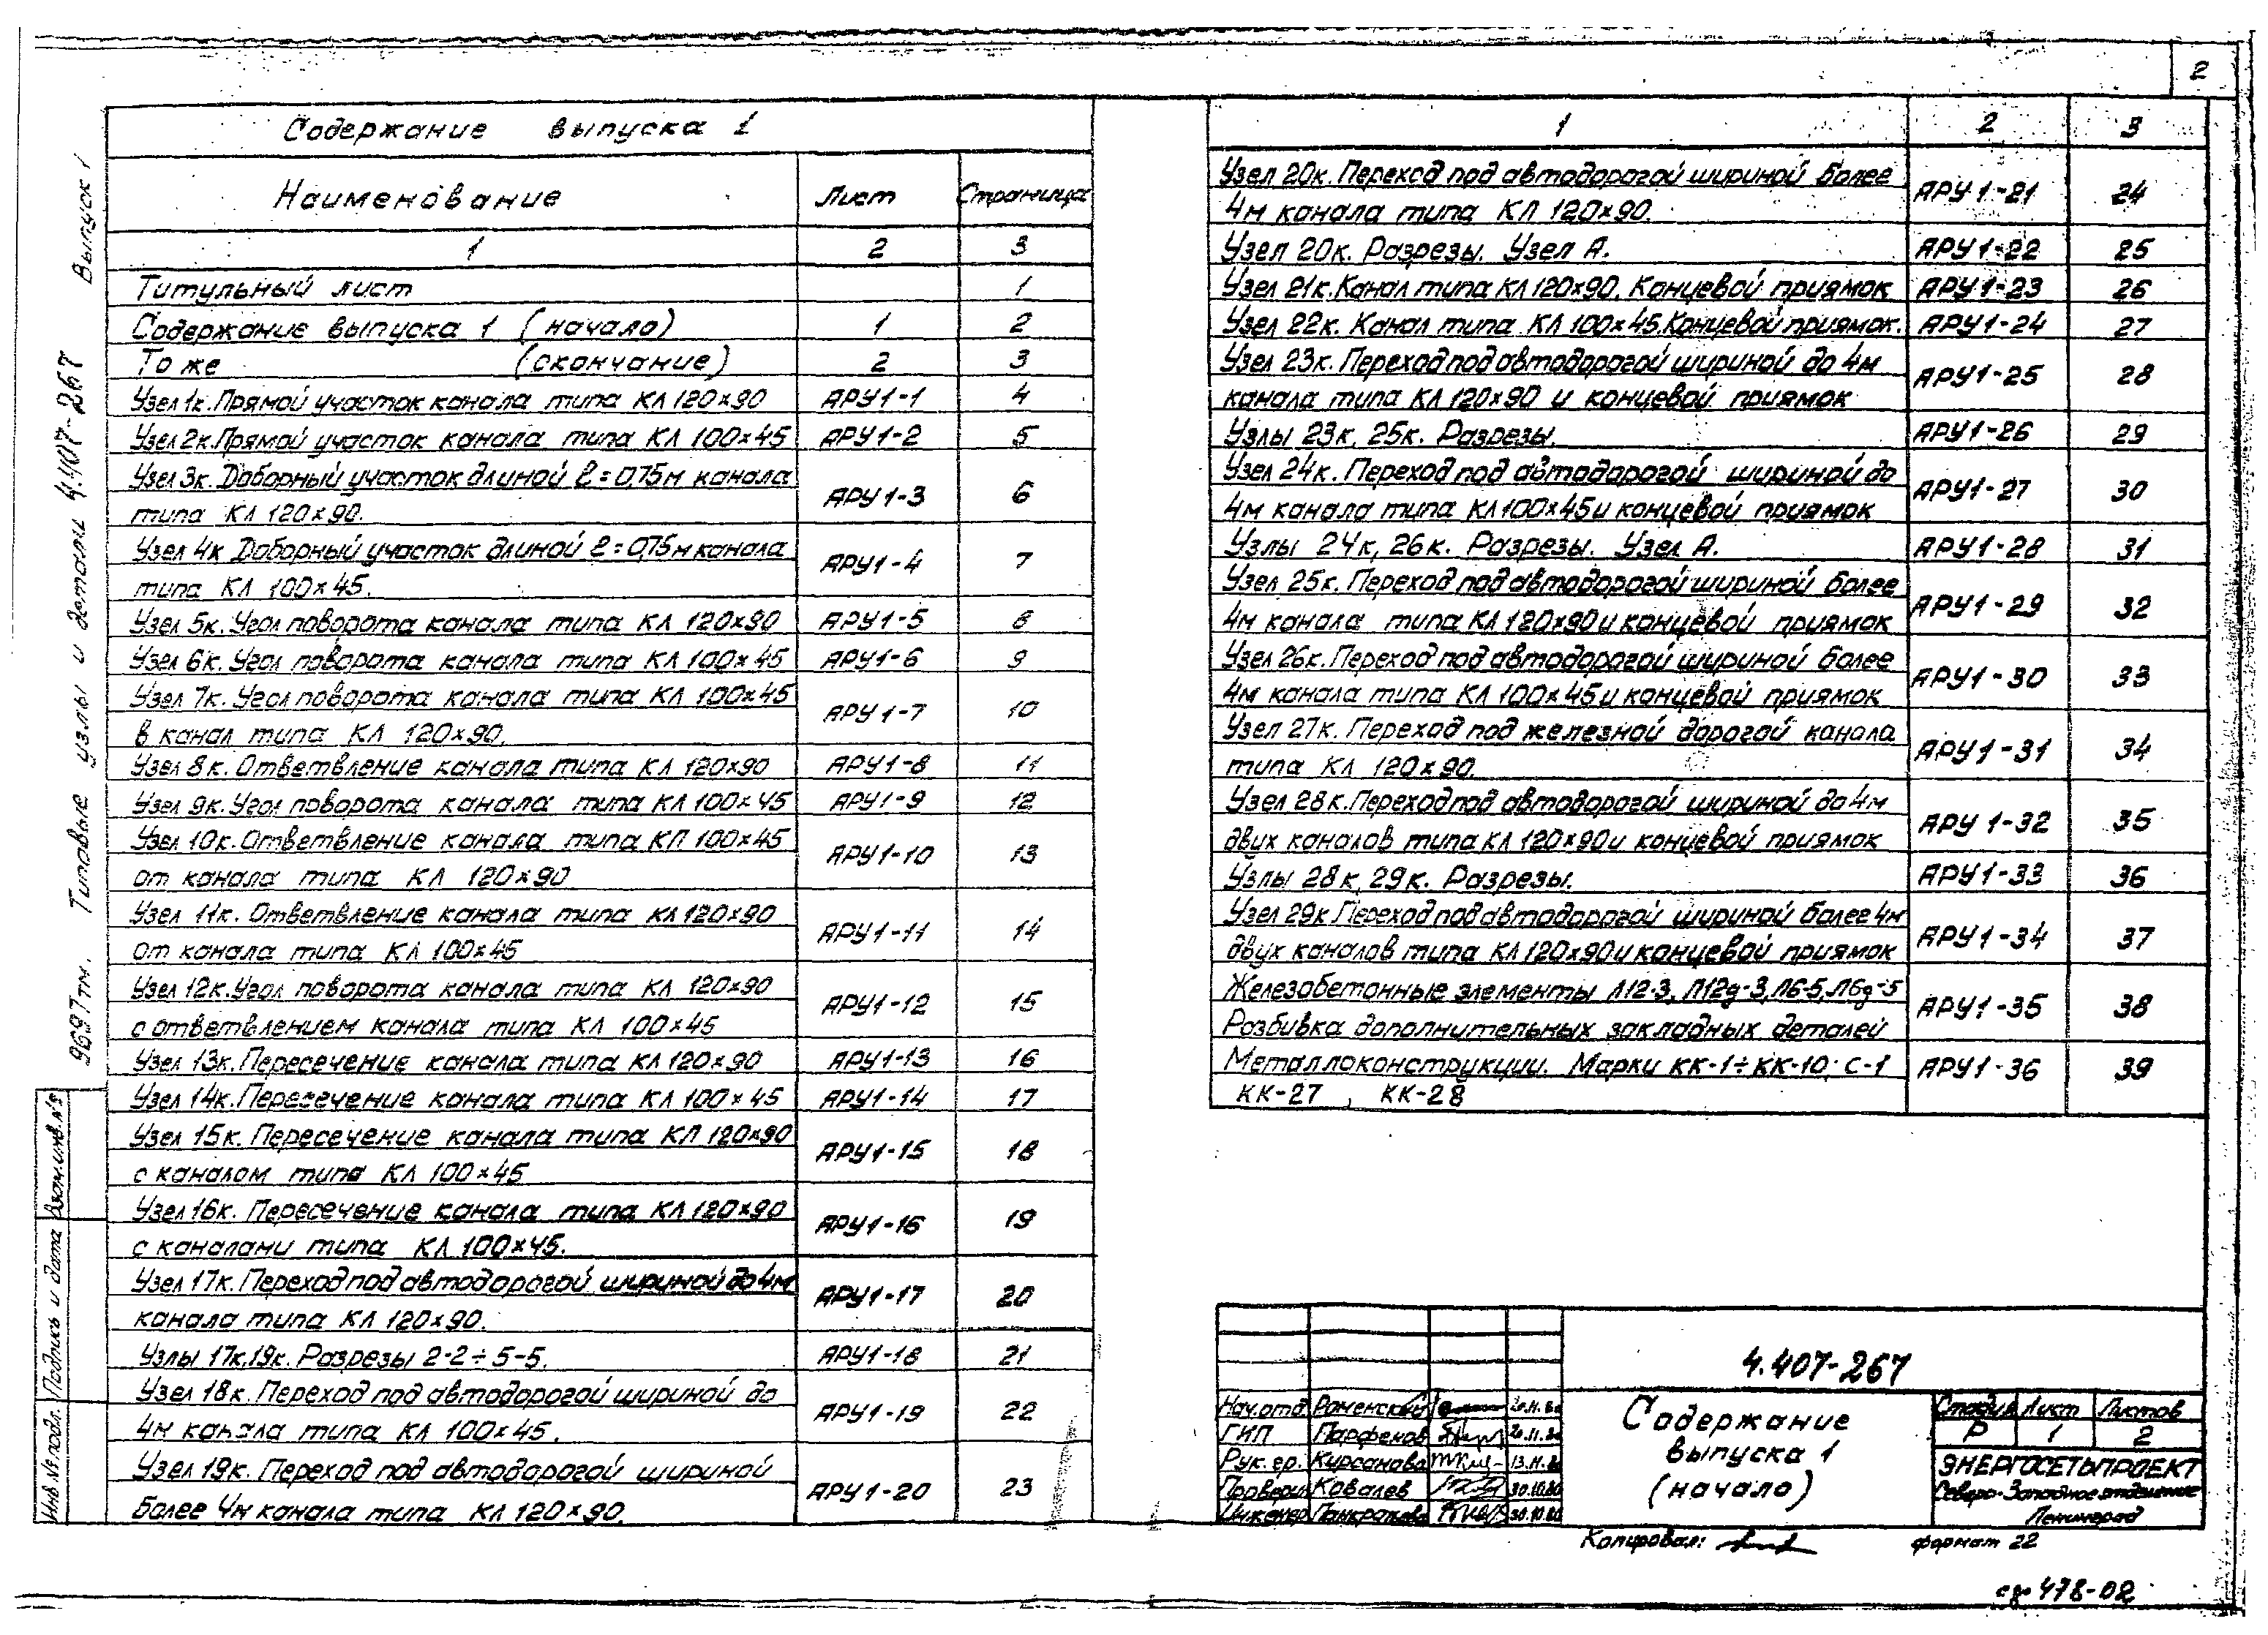 2
Содержание выпуска 1
Наименование Лист Страница
1 2 3
Титульный лист 1
Содержание выпуска 1 (начало) 1 2
То же (окончание) 2 3
Узел 1к. Прямой участок канала типа КЛ 120×90 АРУ1-1 4
Узел 2к. Прямой участок канала типа КЛ 100×45 АРУ1-2 5
Узел 3к. Доборный участок длиной ℓ=0,75м канала
типа КЛ 120×90. АРУ1-3 6
Узел 4к Доборный участок длиной ℓ=0,75м канала
типа КЛ 100×45. АРУ1-4 7
Узел 5к. Угол поворота канала типа КЛ 120×90 АРУ1-5 8
Узел 6к. Угол поворота канала типа КЛ 100×45 АРУ1-6 9
Узел 7к. Угол поворота канала типа КЛ 100×45
в канал типа КЛ 120×90. АРУ1-7 10
Узел 8к. Ответвление канала типа КЛ 120×90 АРУ1-8 11
Узел 9к. Угол поворота канала типа КЛ 100×45 АРУ1-9 12
Узел 10к. Ответвление канала типа КЛ 100×45
от канала типа КЛ 120×90 АРУ1-10 13
Узел 11к. Ответвление канала типа КЛ 120×90
от канала типа КЛ 100×45 АРУ1-11 14
Узел 12к. Угол поворота канала типа КЛ 120×90
с ответвлением канала типа КЛ 100×45 АРУ1-12 15
Узел 13к. Пересечение канала типа КЛ 120×90 АРУ1-13 16
Узел 14к. Пересечение канала типа КЛ 100×45 АРУ1-14 17
Узел 15к. Пересечение канала типа КЛ 120×90
с каналом типа КЛ 100×45 АРУ1-15 18
Узел 16к. Пересечение канала типа КЛ 120×90
с каналами типа КЛ 100×45. АРУ1-16 19
Узел 17к. Переход под автодорогой шириной до 4м
канала типа КЛ 120×90. АРУ1-17 20
Узлы 17к, 19к. Разрезы 2-2÷5-5. АРУ1-18 21
Узел 18к. Переход под автодорогой шириной до
4м канала типа КЛ 100×45. АРУ1-19 22
Узел 19к. Переход под автодорогой шириной
более 4м канала типа КЛ 120×90. АРУ1-20 23
1 2 3
Узел 20к. Переход под автодорогой шириной более
4м канала типа КЛ 120×90. АРУ1-21 24
Узел 20к. Разрезы. Узел А. АРУ1-22 25
Узел 21к. Канал типа КЛ 120×90. Концевой приямок АРУ1-23 26
Узел 22к. Канал типа КЛ 100×45. Концевой приямок. АРУ1-24 27
Узел 23к. Переход под автодорогой шириной до 4м
канала типа КЛ 120×90 и концевой приямок АРУ1-25 28
Узлы 23к, 25к. Разрезы. АРУ1-26 29
Узел 24к. Переход под автодорогой шириной до
4м канала типа КЛ 100×45 и концевой приямок АРУ1-27 30
Узлы 24к, 26к. Разрезы. Узел А. АРУ1-28 31
Узел 25к. Переход под автодорогой шириной более
4м канала типа КЛ 120×90 и концевой приямок АРУ1-29 32
Узел 26к. Переход под автодорогой шириной более
4м канала типа КЛ 100×45 и концевой приямок АРУ1-30 33
Узел 27к. Переход под железной дорогой канала
типа КЛ 120×90. АРУ1-31 34
Узел 28к. Переход под автодорогой шириной до 4м
двух каналов типа КЛ 120×90 и концевой приямок АРУ1-32 35
Узлы 28к, 29к. Разрезы. АРУ1-33 36
Узел 29к Переход под автодорогой шириной более 4м
двух каналов типа КЛ 120×90 и концевой приямок АРУ1-34 37
Железобетонные элементы Л12-3, Л12д-3, Л6-5, Л6д-5
Розбивка дополнительных закладных деталей АРУ1-35 38
Металлоконструкции. Марки КК-1÷КК-10; С-1
КК-27, КК-28 АРУ1-36 39
9697тм. Типовые узлы и детали 4.407-267 Выпуск 1
Взам.инв.№
Подпись и дата
Инв.№ подл.
4.407-267
Нач.отд Роменский 20.11.80
ГИП Парфенов 20.11.80
Рук.гр. Кирсанова 13.11.80
Проверил Ковалев 30.10.80
Инженер Панкратова 30.10.80
Содержание
выпуска 1
(начало)
Стадия Лист Листов
Р 1 2
ЭНЕРГОСЕТЬПРОЕКТ
Северо-Западное отделение
Ленинград
Копировал: формат 22
сф 478-02